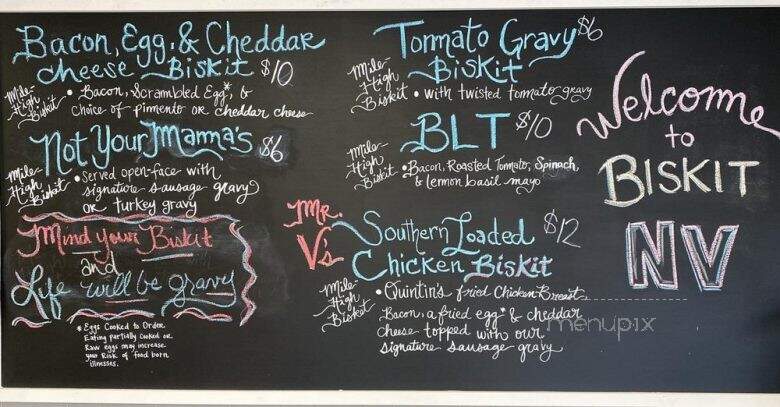 Bacon, Egg, & Cheddar
cheese Biskit $10
Mile-
High
Biskit
• Bacon, Scrambled Egg*, &
choice of pimento or cheddar cheese
Not Your Mamma's $6
Mile-
High
Biskit
• Served open-face with
signature sausage gravy
or turkey gravy
Mind your Biskit
and
Life will be gravy
* Eggs Cooked to Order
Eating partially cooked or
Raw eggs may increase
your Risk of food born
illnesses.
Tormato Gravy $6
Biskit
Mile-
High
Biskit
• with twisted tomato gravy
BLT $10
Mile-
High
Biskit
• Bacon, Roasted Tomato, Spinach,
& lemon basil mayo
Mr.
V's
Southern Loaded $12
Chicken Biskit
Mile-
High
Biskit
• Quintin's fried Chicken Breast
Bacon, a fried egg* & cheddar
cheese topped with our
signature sausage gravy
Welcome
to
BISKIT
NV
menupix